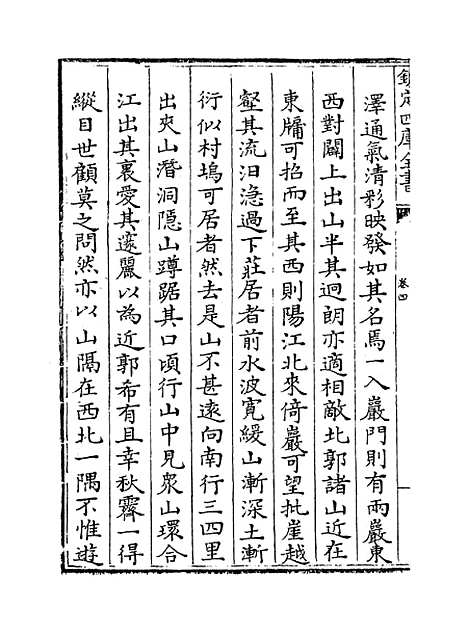 欽定四庫全書
卷四
澤通氣清彩映發如其名焉一入巖門則有兩巖東
西對闢上出山半其迥朗亦適相敵北郭諸山近在
東牖可招而至其西則陽江北來倚巖可望批崖越
壑其流汩㴔過下莊居者前水波寬緩山漸深土漸
衍似村塢可居者然去是山不甚遠向南行三四里
出夾山潛洞隱山蹲踞其口頃行山中見衆山環合
江出其裏愛其邃麗以為近郭希有且幸秋霽一得
縱目世顧莫之問然亦以山隅在西北一隅不惟遊